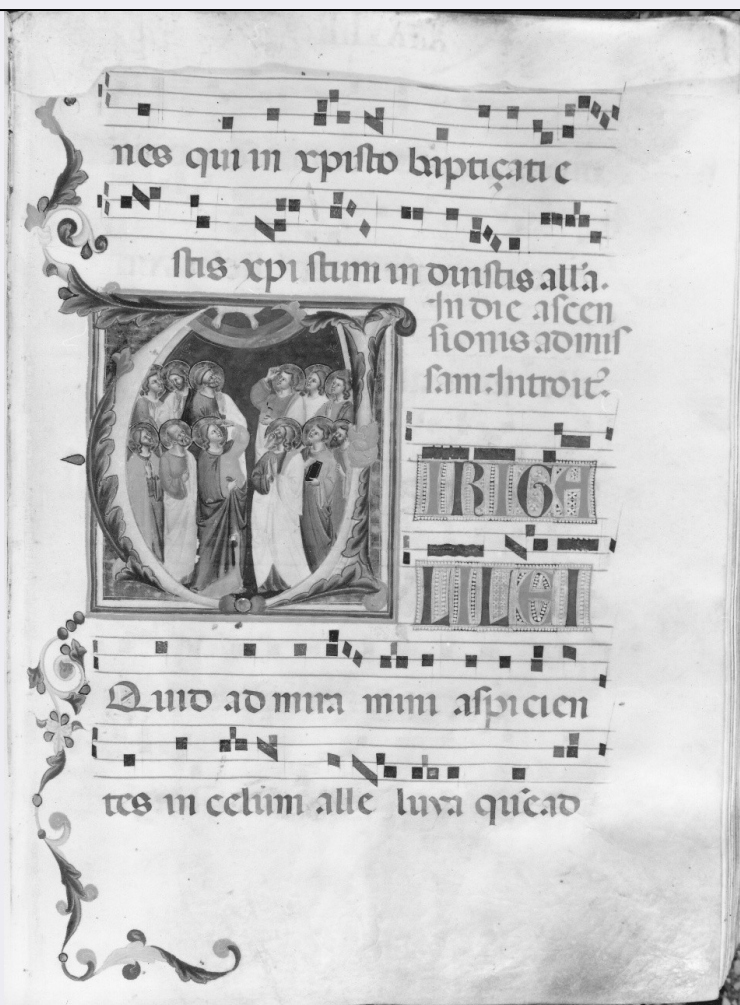 nes qui in xpisto baptiçati e
stis xpistum in duistis all'a.
In die ascen
sionis ad mis
sam. Introit'.
IRI GA
LILEI
Quid ad mira mini aspicien
tes in celum alle luya qu'e ad